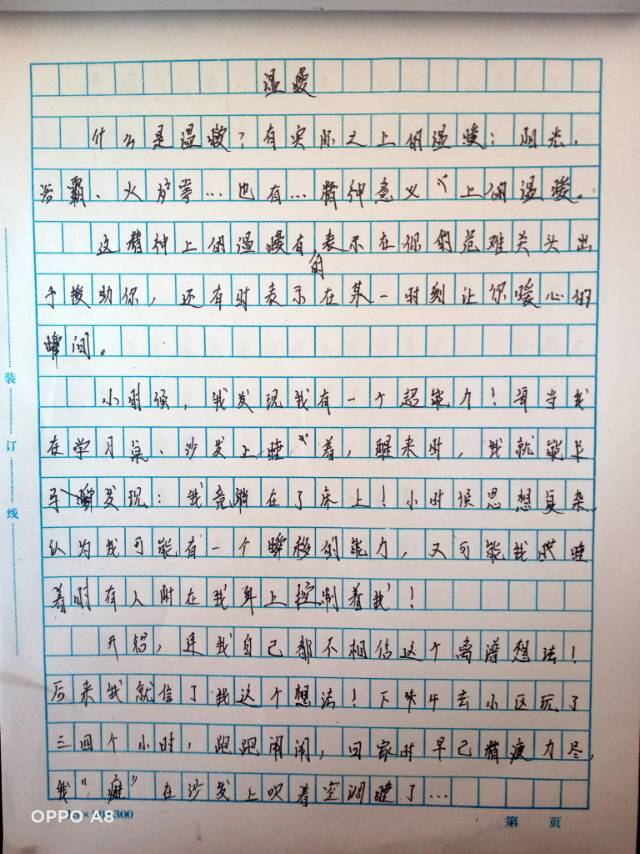 温暖
什么是温暖？有实际之上的温暖：阳光、
浴霸、火炉等…也有…精神意义上的温暖。
这精神上的温暖有的表示在你的危难关头出
手援助你，还有时表示在某一时刻让你暖心的
瞬间。
小时候，我发现我有一个超能力！每当我
在学习桌、沙发上睡着，醒来时，我就能
发现：我竟躺在了床上！小时候思想复杂，
认为我可能有一个瞬移的能力，又可能我睡
着时有人附在我身上控制着我！
开始，连我自己都不相信这个离谱想法！
后来我就信了我这个想法！下午去小区玩了
三四个小时，跑跑闹闹，回家时早已精疲力尽，
我"瘫"在沙发上吹着空调睡了…
装
订
线
300
第 页
OPPO A8